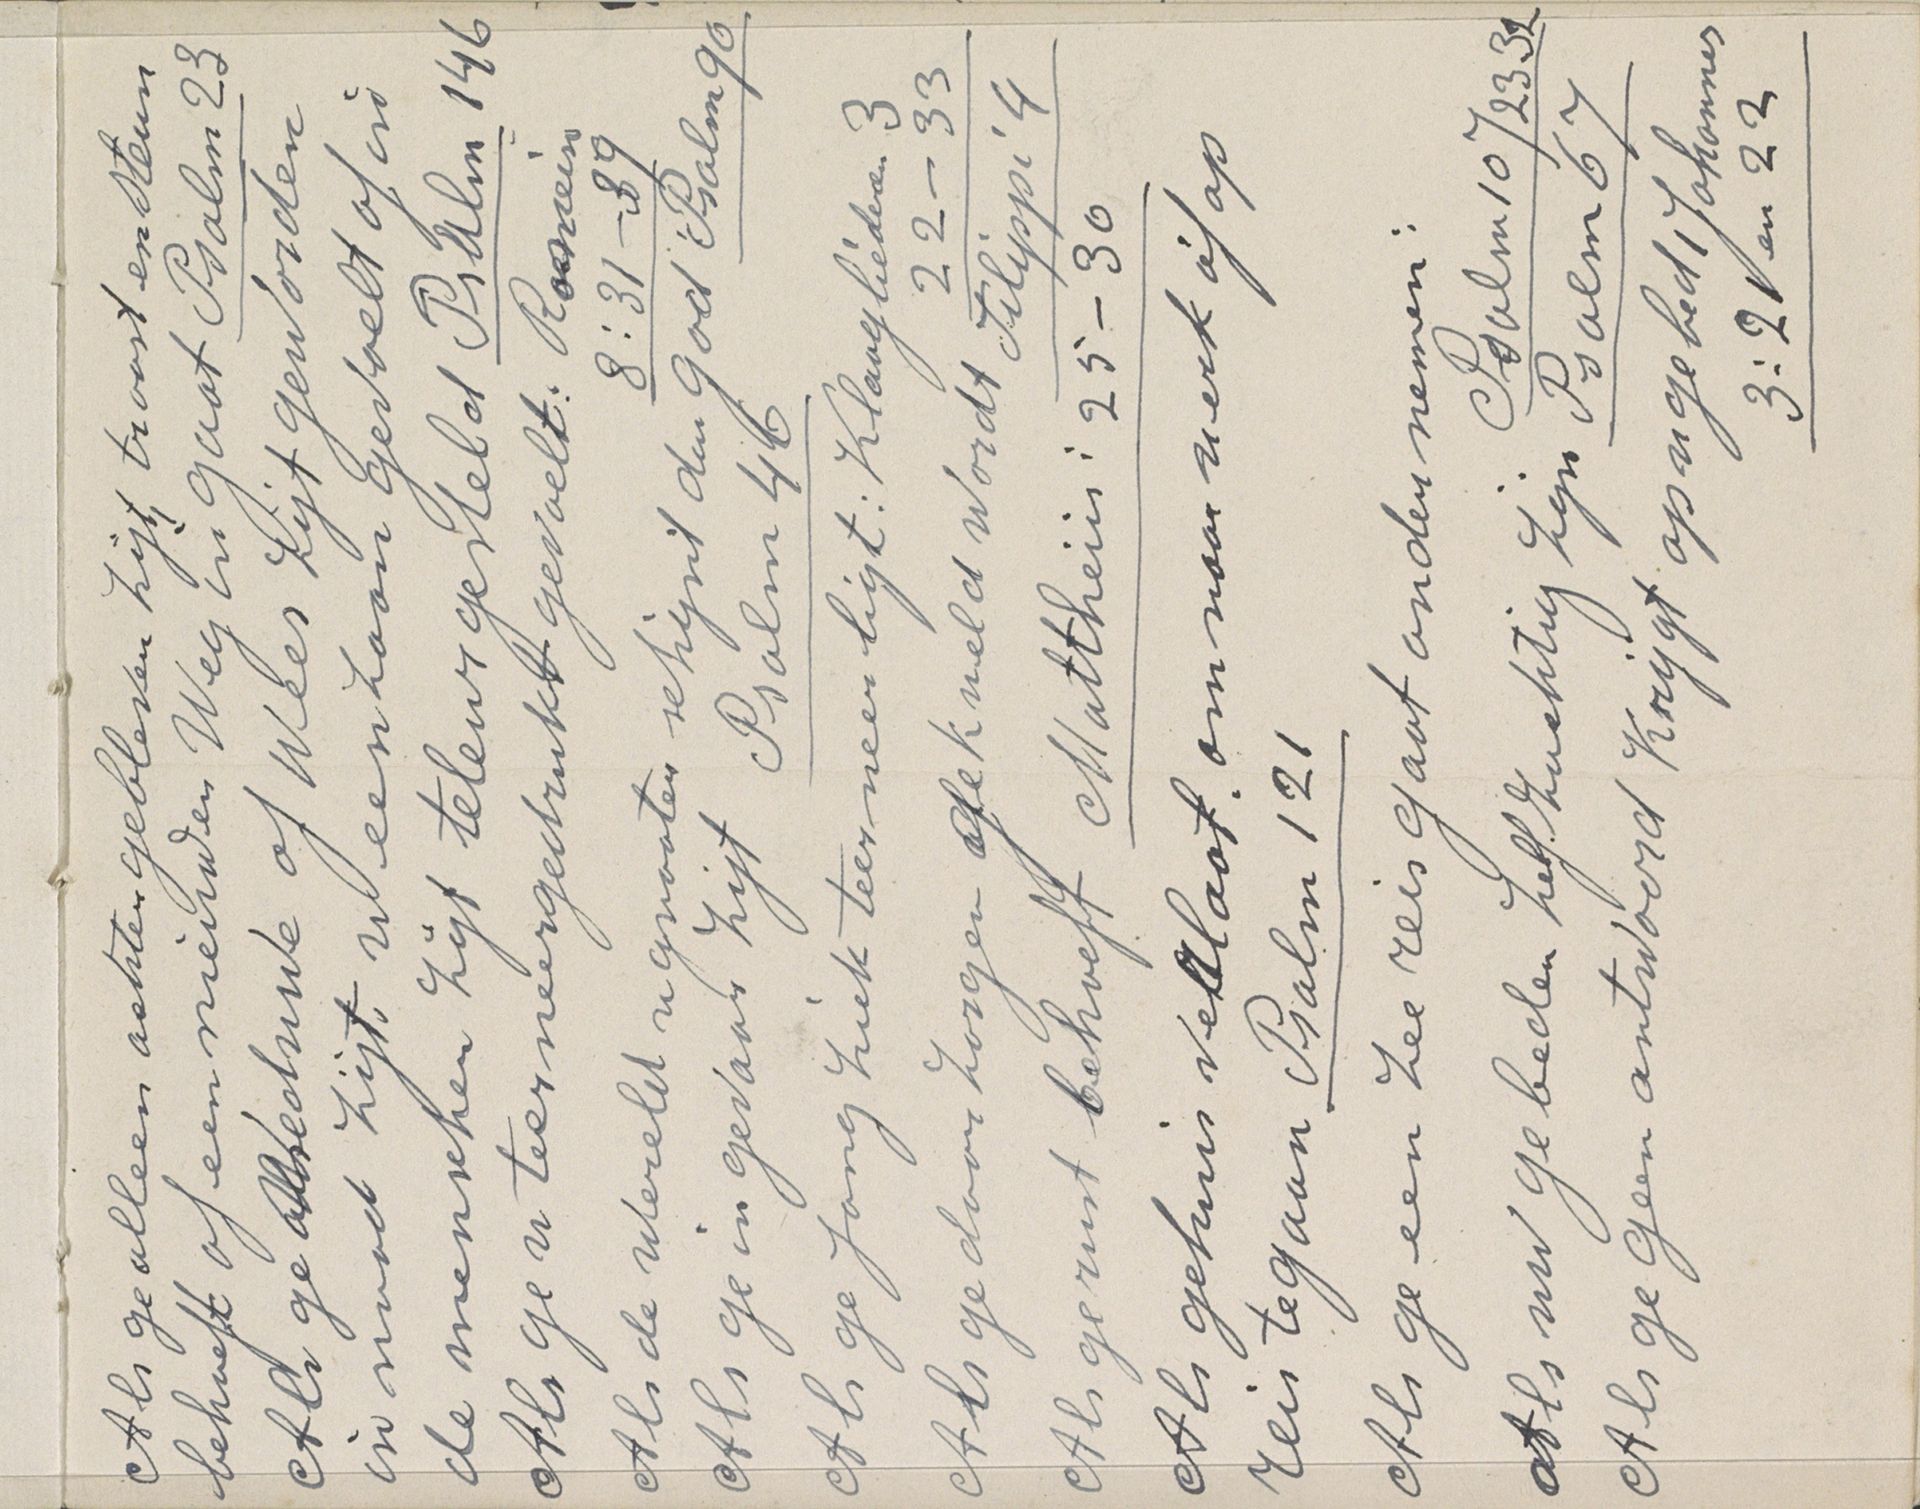 Als ge alleen achtergebleven zijt, troost en steun
behoeft of een nieuwen Weg in gaat Psalm 23
Als ge Weduwe of Wees zijt geworden
in nood zijt, u eenzaam gevoelt of in
de menschen zijt teleurgesteld Psalm 146
Als ge u teerneergedrukt gevoelt: Romein
8:31-39
Als de wereld u grooter schijnt dan god: Psalm 90
Als ge in gevaar zijt Psalm 46
Als ge jong ziek teerneerligt: Klaagliederen 3
22-33
Als ge door zorgen gekweld wordt Filippi 4
Als ge rust behoeft Mattheüs: 25-30
Als ge huis verlaat om naar werk of op
reis te gaan Psalm 121
Als ge een zee reis gaat ondernemen:
Psalm 107/23 32
Als uw gebeden zelfzuchtig zijn Psalm 67
Als ge geen antwoord Krijgt op uw gebed 1 Johannes
3:21 en 22